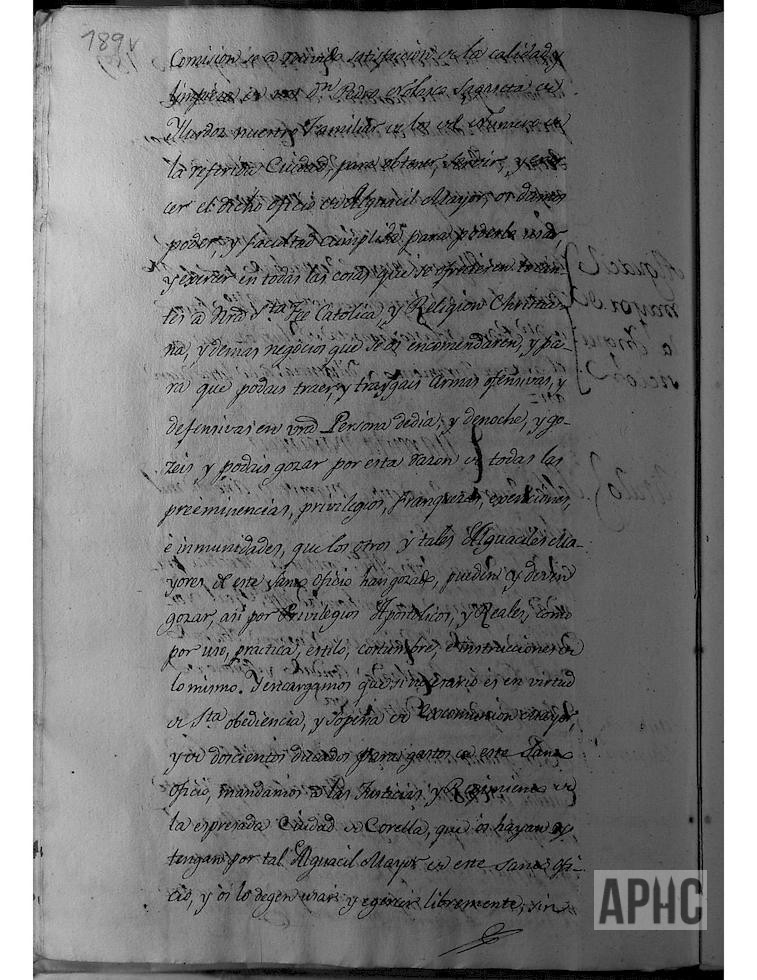 189v
Comision se a tenido satisfacion de la calidad, y
limpieza de vos Dn Pedro Sagaseta de
Ylurdoz nuestro Familiar de los del Numero de
la referida Ciudad, para obtener, servir, y exer-
cer el dicho oficio de Alguacil Mayor, os damos
poder, y facultad cumplida para poderle usar,
y exercer en todas las cosas que se ofrecieren tocan-
tes a nra sta Fee Catolica, y Religion Christia-
na, y demas negocios que se os encomendaren, y pa-
ra que podais traer, y traygais Armas ofensivas, y
defensivas en vra Persona de dia, y de noche, y go-
zeis y podais gozar por esta razon de todas las
preeminencias, privilegios, franquezas, exenciones,
e inmunidades, que los otros y tales Alguaciles Ma-
yores de este santo oficio han gozado, pueden, y deven
gozar, asi por Privilegios Apostolicos, y Reales, como
por uso, practica, estilo, costumbre, e instrucciones de
lo mismo. Y encargamos que si necesario es en virtud
de Sta obediencia, y sopena de Excomunion mayor,
y de doscientos ducados para gastos de este Santo
Oficio, mandamos a las Justicias y Regimiento de
la expresada Ciudad de Corella, que os hayan y
tengan por tal Alguacil Mayor de este Santo Ofi-
cio, y os lo degen usar y egercer libremente, sin
Alguacil
mayor de
la
APHC